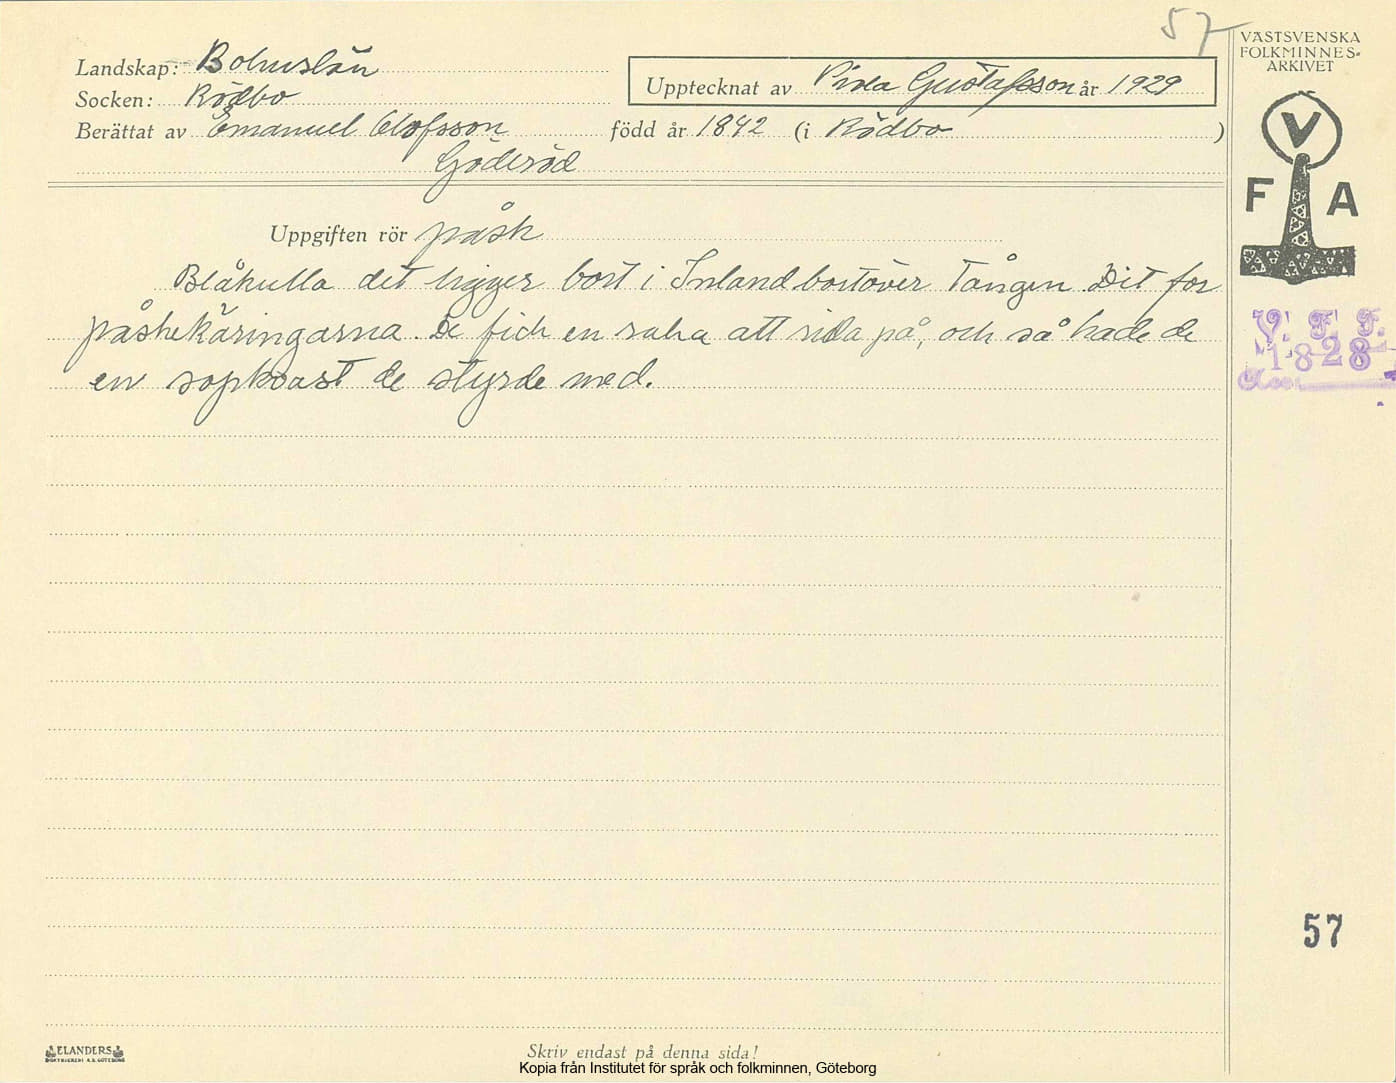 57
VÄSTSVENSKA
FOLKMINNES-
ARKIVET
Landskap: Bohuslän
Socken: Rödbo
Upptecknat av Gustafsson år 1929
Berättat av Emanuel Olofsson född år 1842 (i Rödbo )
Göderöd
V
F A
Uppgiften rör påsk
Blåkulla det ligger bort i Inland bortöver Tången Dit for
påskekäringarna. De fick en raka att rida på, och så hade de
en sopkvast de styrde med.
V. F. F.
1828
57
ELANDERS
BOKTRYCKERI A.B. GÖTEBORG
Skriv endast på denna sida!
Kopia från Institutet för språk och folkminnen, Göteborg